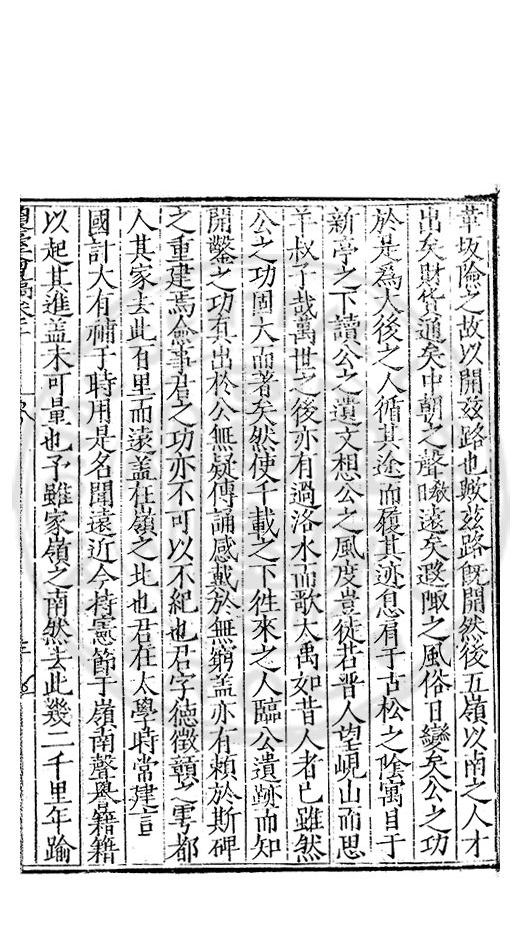 華坂險之故以開兹路也歟兹路旣開然後五嶺以南之人才
出矣財貨通矣中朝之聲敎遠矣遐陬之風俗日變矣公之功
於是爲大後之人循其途而履其迹息肩于古松之陰寓目于
新亭之下讀公之遺文想公之風度豈徒若晋人望峴山而思
羊叔子哉萬世之後亦有過洛水而歌大禹如昔人者已雖然
公之功固大而著矣然使千載之下徃來之人臨公遺跡而知
開鑿之功真出於公無疑傳誦感戴於無窮盖亦有頼於斯碑
之重建焉僉事君之功亦不可以不紀也君字德徵贛之雩都
人其家去此百里而遠盖在嶺之北也君在太學時常建言
國計大有禆于時用是名聞遠近今持憲節于嶺南聲譽籍籍
以起其進盖未可量也予雖家嶺之南然去此幾二千里年踰